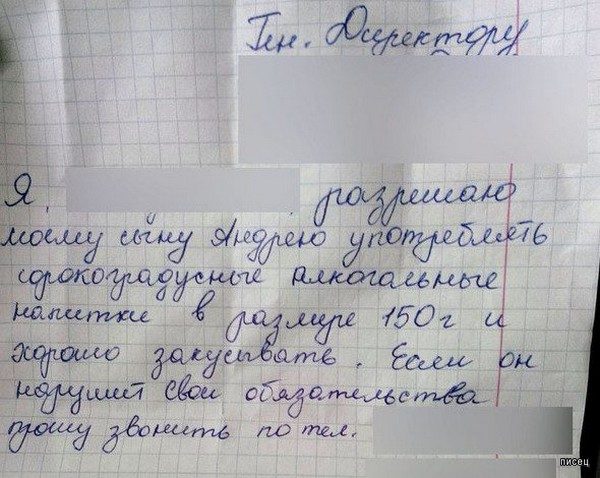 Ген. Директору
Я разрешаю
моему сыну Андрею употреблять
сорокоградусные алкогольные
напитки в размере 150 г и
хорошо закусывать. Если он
нарушит свои обязательства
прошу звонить по тел.
писец